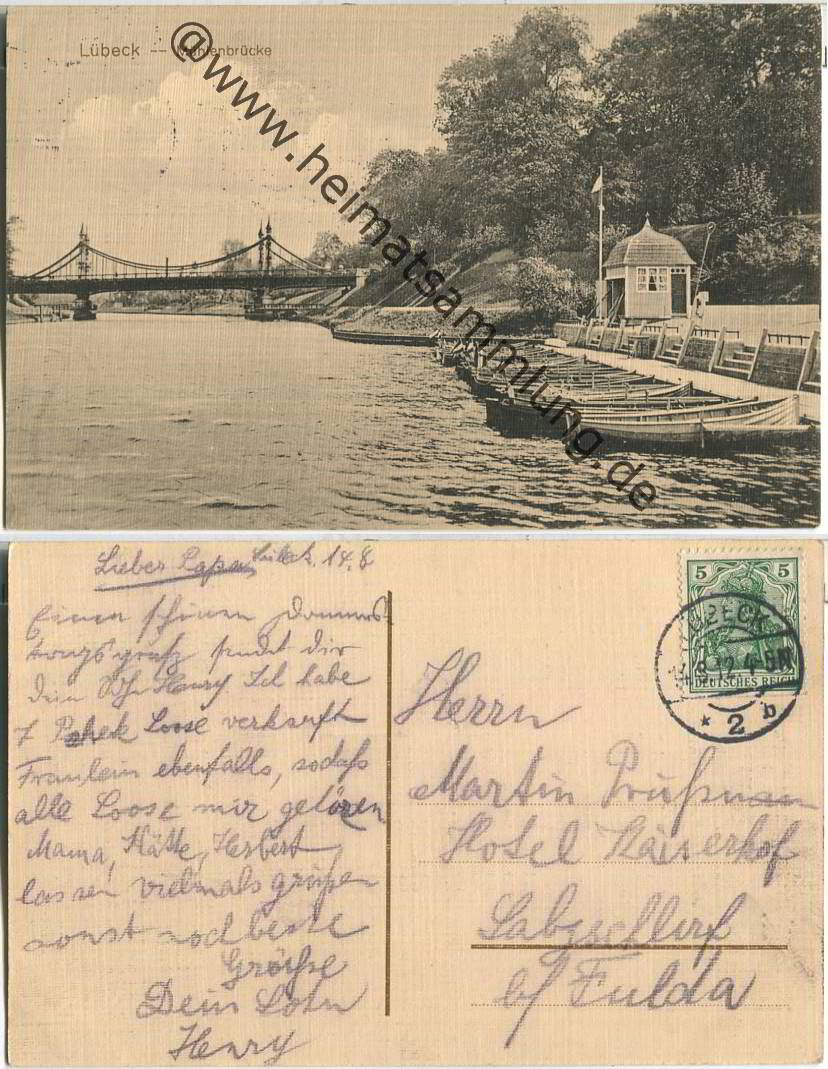 Lübeck -- Mühlenbrücke
@www.heimatsammlung.de
Lieber Papa, Lübeck. 14.8
Einen schönen Donners
tagsgruß sendet dir
dein Henry Ich habe
7 Loose verkauft
Fräulein ebenfalls, sodaß
alle Loose mir gehören
Mama, Käthe, Herbert,
lassen vielmals grüßen
sonst noch beste
Größe
Dein Sohn
Henry
5 5
DEUTSCHES REICH
LÜBECK
2 b
Herrn
Martin Prüßmann
Hotel Kaiserhof
Salzschlirf
b/ Fulda